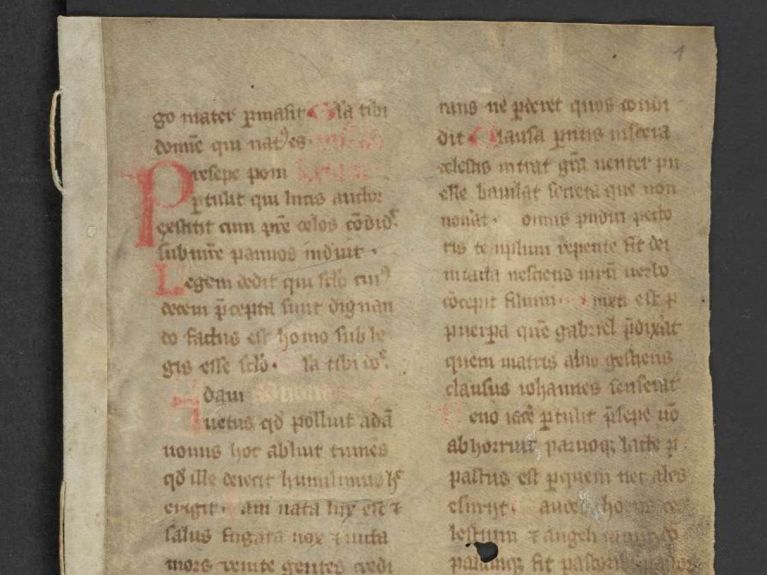 1
go mater pmāsit Gła tibi
domīe qui nat⁹ es
Presepe poni
ptulit qui lucis auctor
cum pre celos
sub mre pannos induit.
Legem dedit qui sclo
decem pcepta sunt dignan
do factus est homo sub le
gis esse sclo. la tibi do.
Adam
uetus qd polluit adā
nouus hoc abluit tumes
qd ille deiecit humilimus h
erigit. Iam nata lux est ⁊
salus fugata nox ⁊ uicta
mors uenite gentes credi
rans ne pderet quos condi
dit Clausa pntis uiscera
celestis intrat gra uenter pu
elle baiulat secreta que non
nouat. omus pudici pecto
ris templum repente fit dei
intacta nesciens uirū uerbo
cōcepit filium nixa est p
puerpa quē gabriel pdixat
quem matris aluo gestiens
clausus iohannes senserat
eno iace ptulit psepe nō
abhorruit paruoq; lacte p
pastus est pquem nec ales
esurit. audet chorus ce
lestium ⁊ angeli
palamq; fit pastorib